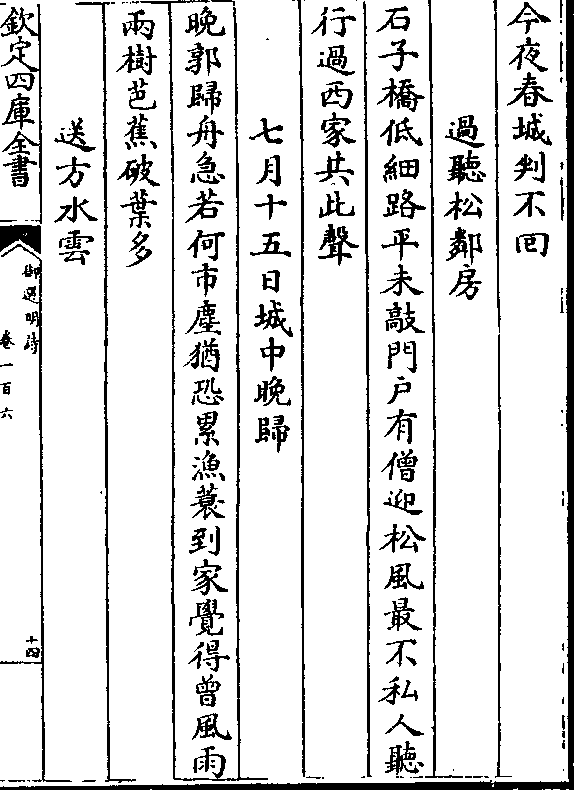 今夜春城判不回
過聽松鄰房
石子橋低細路平未敲門戶有僧迎松風最不私人聽
行過西家共此聲
七月十五日城中晚歸
晚郭歸舟急若何市塵猶恐累漁蓑到家覺得曾風雨
兩樹芭蕉破葉多
送方水雲
欽定四庫全書
御選明詩
卷一百六
十四